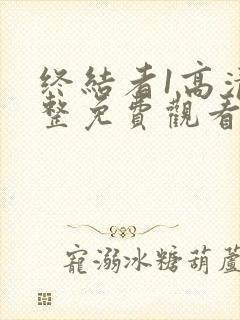 終結者1高清
整免費觀看
寵溺冰糖葫蘆